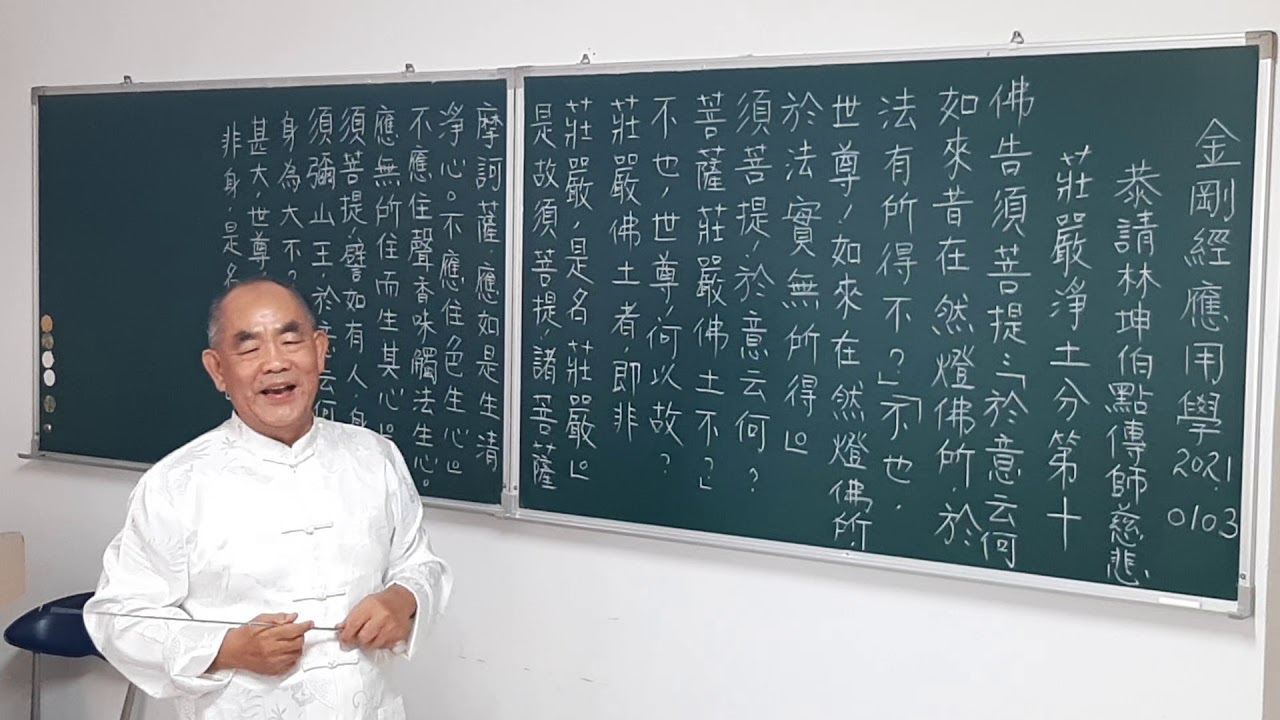 金剛經應用學
2021.
0103
恭請林坤伯點傳師慈悲
莊嚴淨土分第十
佛告須菩提:「於意云何
如來昔在然燈佛所,於
法有所得不?」「不也,
世尊!如來在然燈佛所,
於法實無所得。」
須菩提!於意云何?
菩薩莊嚴佛土不?」
不也,世尊!何以故?
莊嚴佛土者即非
莊嚴,是名莊嚴。」
是故須菩提,諸菩薩
摩訶薩,應如是生清
淨心。不應住色生心。」
不應住聲香味觸法生心。
應無所住而生其心。」
須菩提!譬如有人,身
須彌山王,於意云何
身為大不?
甚大,世尊
非身,是名